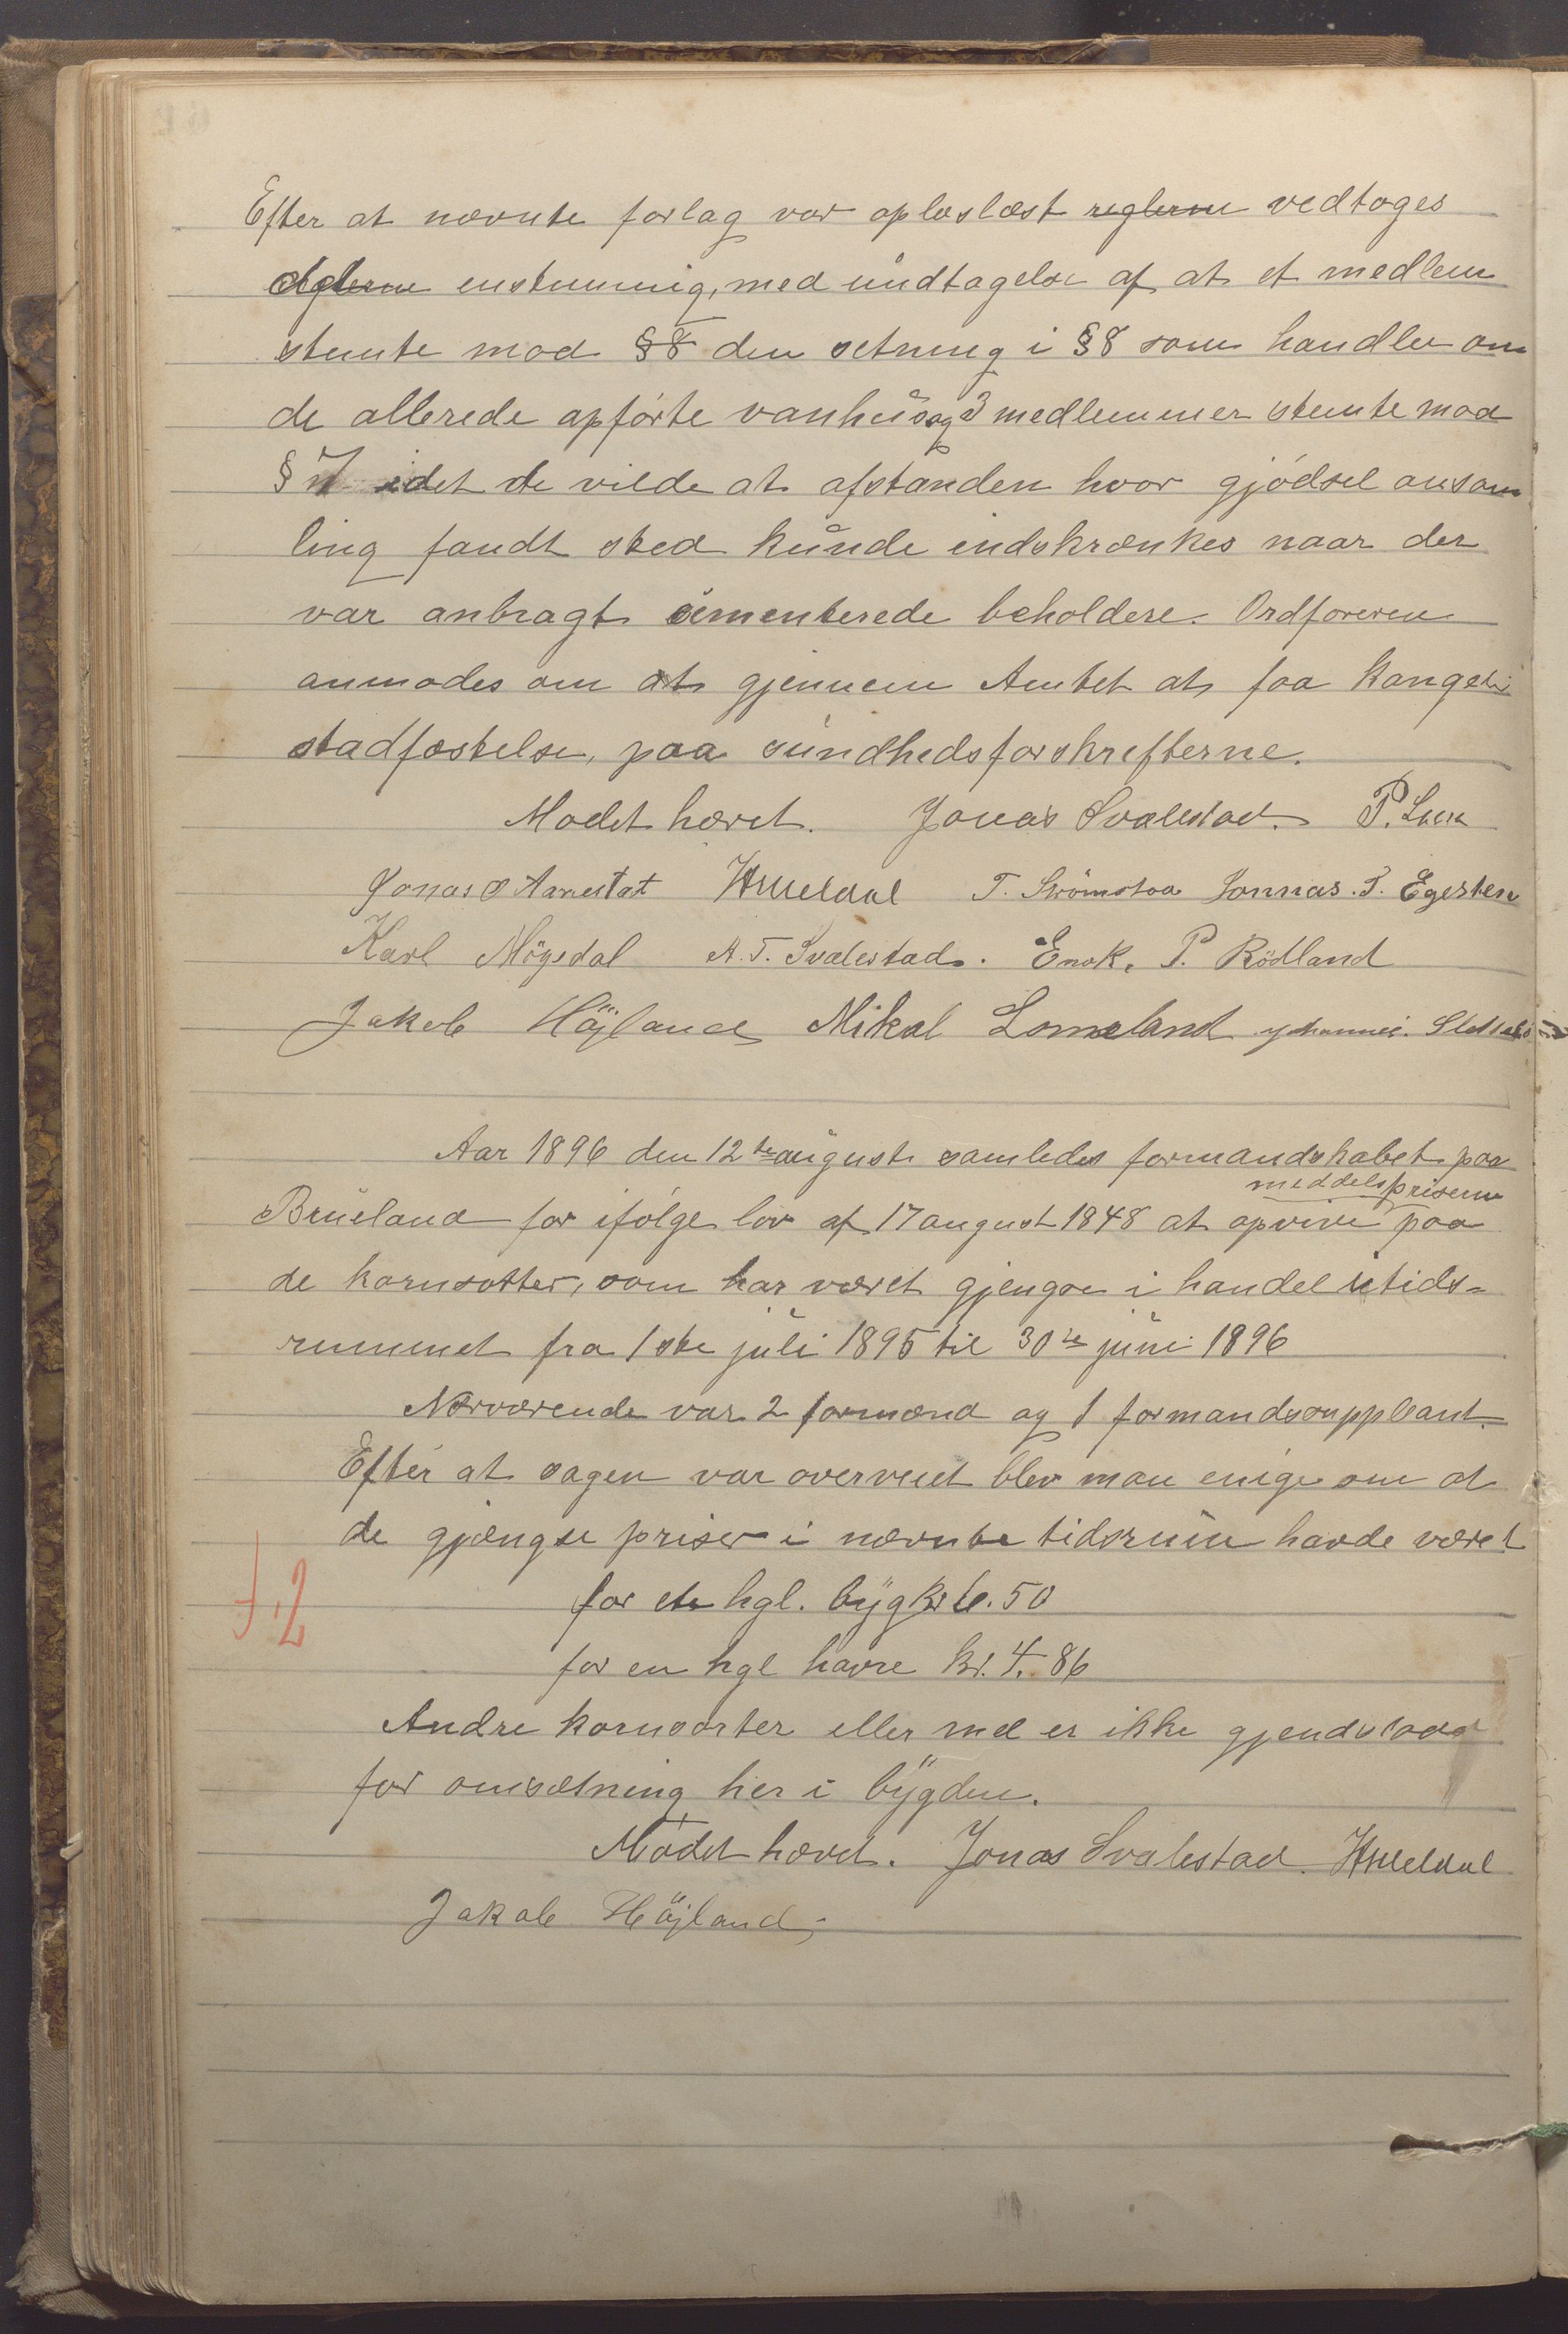 Efter at nævnte forlag var oplæslæst reglerne vedtoges
enstemmig, med undtagelse af at et medlem
stemte mod §8 den setning i §8 som handler om
de allerede opførte vanhus og 3 medlemmer stemte mod
§ 7 idet de vilde at afstanden hvor gjødsel ansam
ling fandt sted kunde indskrænkes naar der
var anbragt sementerede beholdere. Ordføreren
anmodes om at gjennem Amtet at faa kongeli
stadfæstelse, paa sundhedsforskrifterne.
Mødet hævet. Jonas Svalestad. P. Lura
Jonas O Aarrestat T. Strömstoa Jonnas. T. Egesten
Karl Mögedal A. T. Svalestad. Enok. P. Rödland
Jakob Höjland Mikal Lomeland
Aar 1896 den 12te august samledes formandskabet paa
meddelspriserne
Brueland for ifølge lov af 17 august 1848 at opgive paa
de kornsotter, som har været gjengse i handel i tids-
rummet fra 1ste juli 1895 til 30te juni 1896
Nærværende var 2 formænd og 1 formandssuppleant.
Efter at sagen var overveiet blev man enige om at
de gjængse priser i nævnte tidsrum havde været
for en hgl. byg kr 6.50
for en hgl havre kr. 4. 86
Andre kornsorter eller mel er ikke gjendstand
for omsætning her i bygden.
Mødet hævet. Jonas Svalestad.
Jakob Höjland